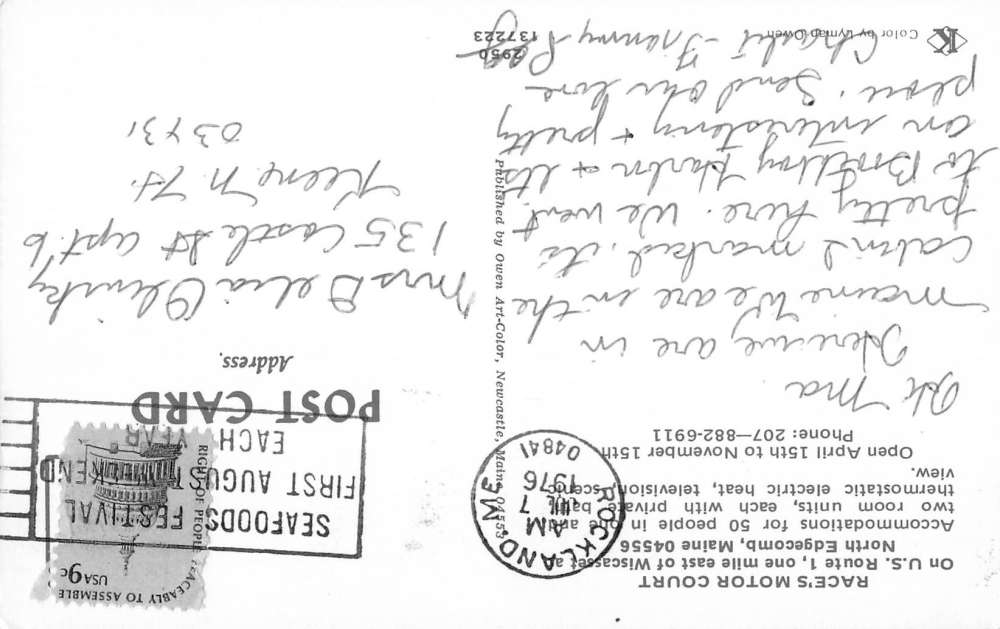 RACE'S MOTOR COURT
On U.S. Route 1, one mile east of Wiscasset at
North Edgecomb, Maine 04556
Accommodations for 50 people in one and
two room units, each with private bath,
thermostatic electric heat, television, scenic
view.
Open April 15th to November 15th
Phone: 207—882-6911
Hi Ma
Here we are in
Maine We are in the
cabin I marked, its
pretty here. We went
to Boothbay Harbor & its
an interesting & pretty
place. Send our love
Charlie - Frammy
K
Color by Lyman Owen
2950
137223
Published by Owen Art-Color, Newcastle, Maine 04553
ROCKLAND, ME
AM
7
JUL
1976
04841
SEAFOODS FESTIVAL
FIRST AUGUST WEEKEND
EACH YEAR
RIGHT OF PEOPLE PEACEABLY TO ASSEMBLE
USA 9c
POST CARD
Address.
Mrs Delia Olinsky
135 Castle St apt. 6
Keene N. H.
03431